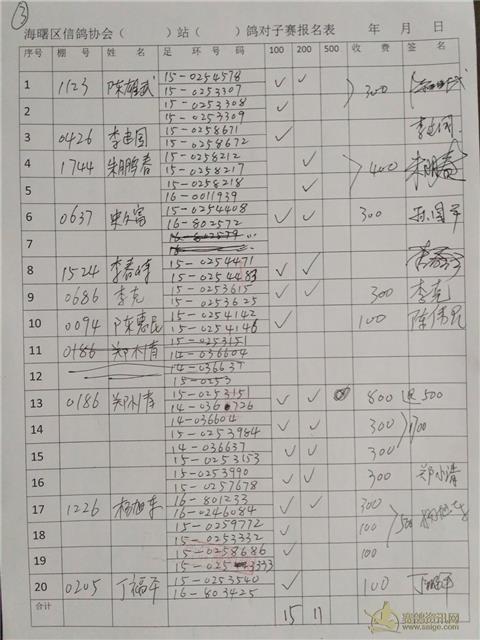 ③
海曙区信鸽协会（ ）站（ ）鸽对子赛报名表 年 月 日
序号 棚 号 姓 名 足 环 号 码 100 200 500 收 费 签 名
1 1123 陈雄武 15-0254578 ✓ ✓ 300
15-0253307
2 15-0253308 ✓
15-0253309
3 0426 李建国 15-0258671 ✓ 李建国
15-0258672
4 1744 朱鹏春 15-0258212 ✓ 400 朱鹏春
15-0258217
5 15-0258218 ✓
16-0011939
6 0637 15-0254408 ✓ ✓ 300
16-802572
7
8 1524 李春峰 15-0254471 ✓ ✓
15-0254483
9 0686 李克 15-0253615 ✓ ✓ 300 李克
15-0253625
10 0094 陈惠民 15-0254142 ✓ 100 陈伟民
15-0254146
11 0186 郑小青 15-0253151
14-036604
12 14-036637
15-0253
13 0186 郑小青 15-0253151 ✓ ✓ 800 退500
14-036726
14 14-036604 ✓ ✓ 300 1700
15-0253984
15 14-036637 ✓ ✓ 300
15-0253153
16 15-0253990 ✓ ✓ 300 郑小清
15-0257678
17 1226 杨旭东 16-801233 ✓ ✓ 300
16-0246084
18 15-0259772 ✓ 100 500
15-0253332
19 15-0258686 ✓ 100
15-0253333
20 0205 丁福平 15-0253540 ✓ 100 丁福平
16-803425
合计 15 11
赛鸽资讯网
www.saige.com